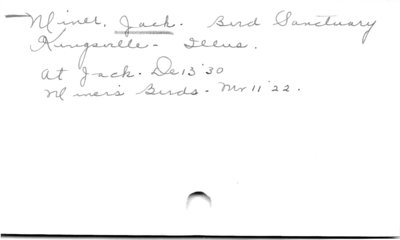 Miner, Jack. Bird Sanctuary
Kingsville - Illus.
At Jack. De 13 '30
Miner's Birds - Mr 11 '22.